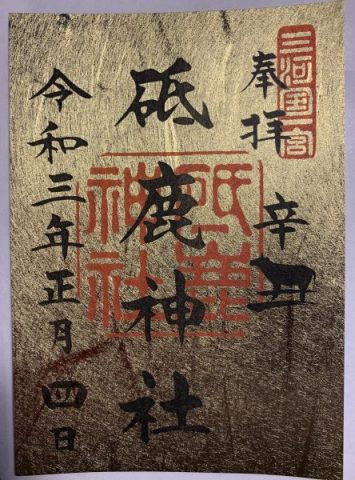 三河国一宮
奉拝
辛丑
砥鹿神社
砥鹿神社
令和三年正月四日